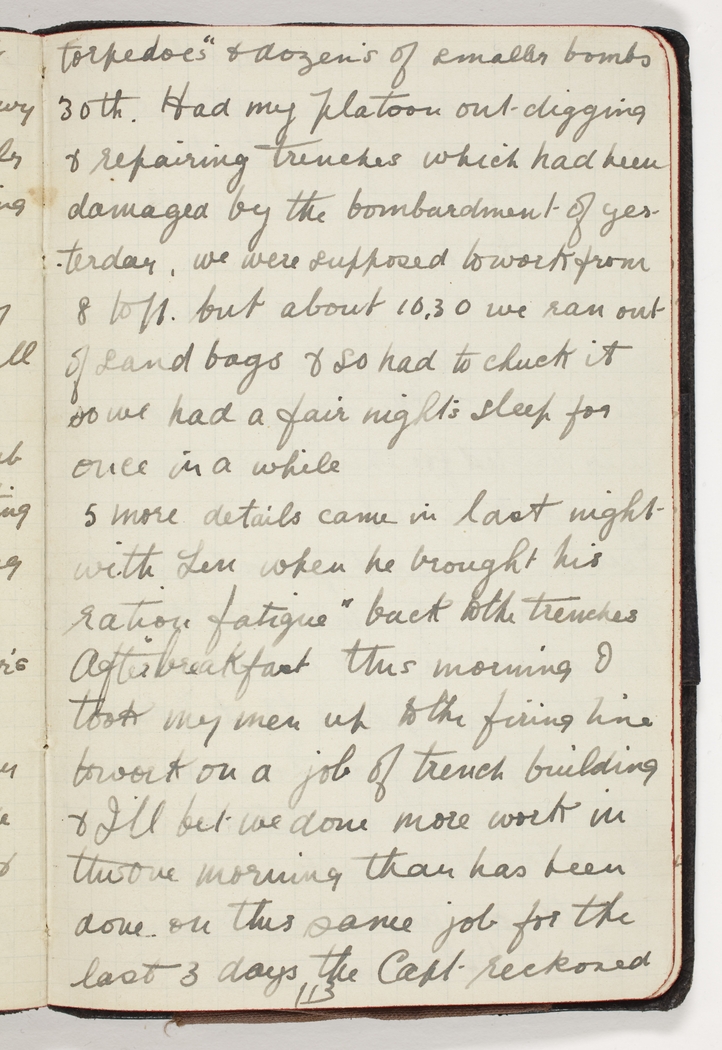 torpedoes" & dozens of smaller bombs
30th. Had my platoon out digging
& repairing trenches which had been
damaged by the bombardment of yes-
-terday, we were supposed to work from
8 to 11. but about 10.30 we ran out
of sand bags & so had to chuck it
so we had a fair night's sleep for
once in a while
5 more details came in last night
with Len when he brought his
ration fatigue" back to the trenches
After breakfast this morning I
took my men up to the firing line
to work on a job of trench building
& I'll bet we done more work in
the one morning than has been
done on this same job for the
last 3 days the Capt. reckoned
113